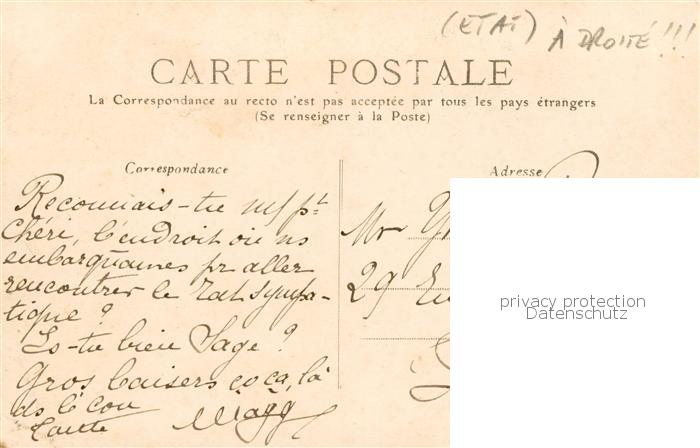 (ETAT) À DROITE!!!
CARTE POSTALE
La Correspondance au recto n'est pas acceptée par tous les pays étrangers
(Se renseigner à la Poste)
Correspondance
Reconnais-tu
chéri, l'endroit où ns
embarquames pr aller
rencontrer le sympa-
tique ?
tu bien Sage ?
Gros baisers
ds l'cou
Adresse
Mr
29
privacy protection
Datenschutz